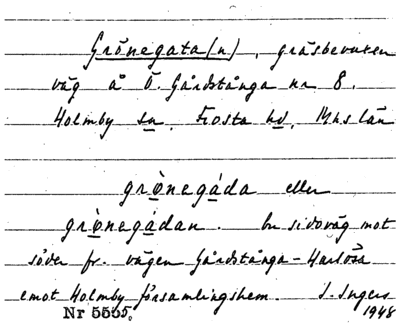 Grönegata(n), gräsbevuxen
väg å Ö. Gårdstånga nr 8.
Holmby sn, Frosta hd, Mhs län
grø̀negáda eller
grø̀negádan. En sidoväg mot
söder fr. vägen Gårdstånga-Harlösa
emot Holmby församlingshem. I. Ingers
Nr 5555. 1948